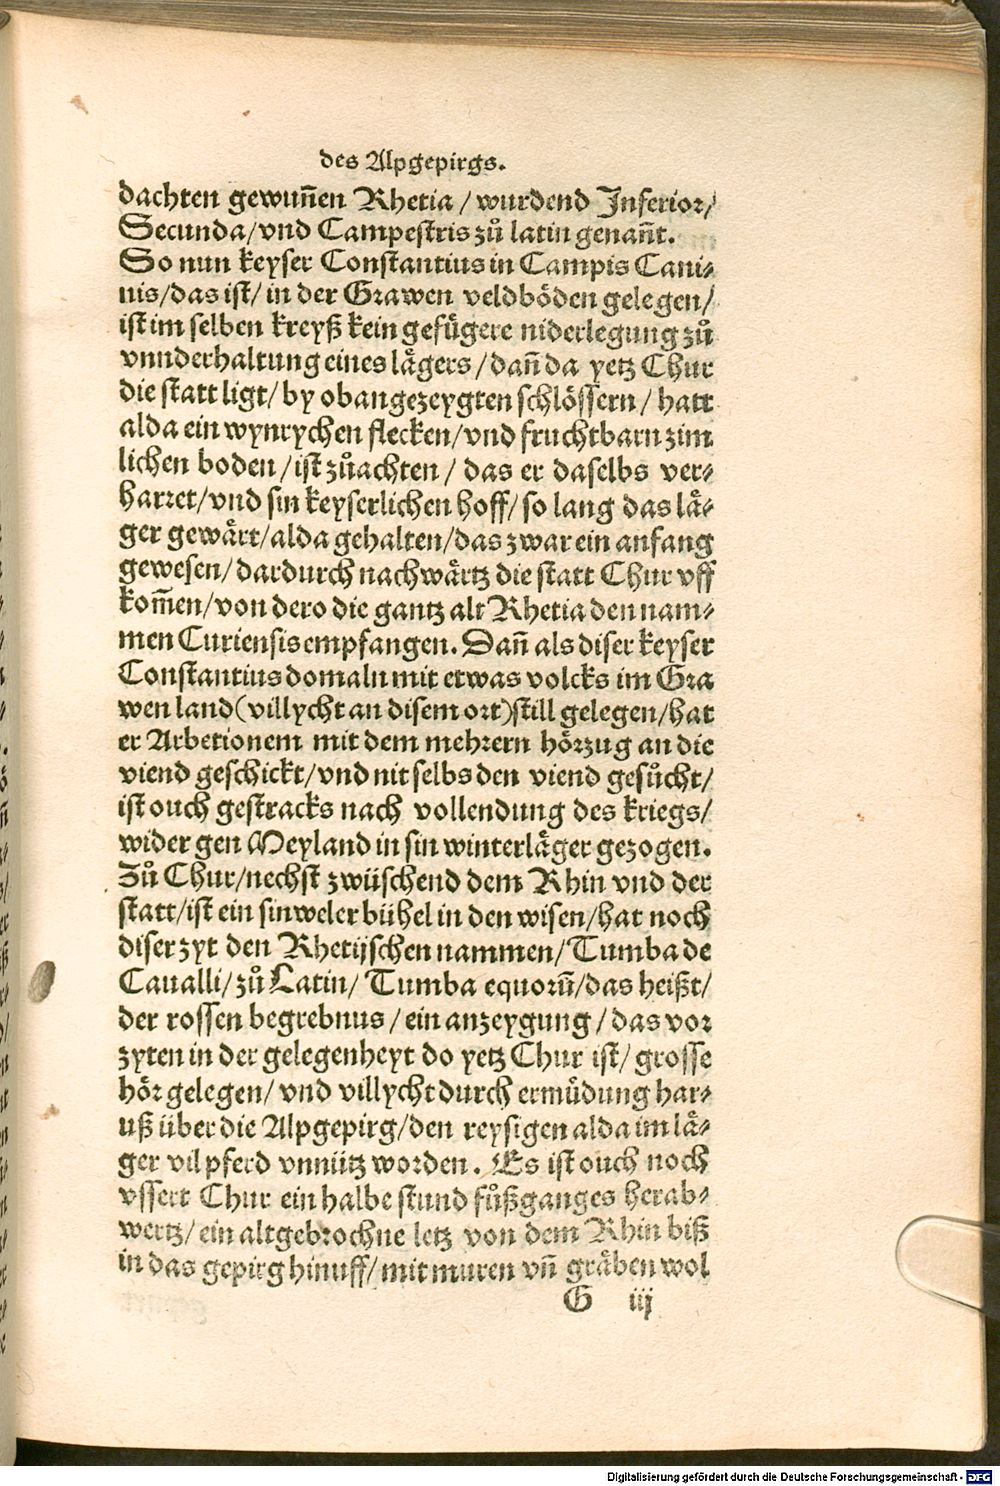 des Alpgepirgs.
dachten gewuñen Rhetia / wurdend Inferior/
Secunda/vnd Campestris zů latin genañt.
So nun keyser Constantius in Campis Cani⸗
nis/das ist/ in der Grawen veldböden gelegen/
ist im selben kreyß kein gefügere niderlegung zů
vnnderhaltung eines lägers / dañ da yetz Chur
die statt ligt/ by obangezeygten schlössern / hatt
alda ein wynrychen flecken/vnd fruchtbarn zim
lichen boden / ist zůachten / das er daselbs ver⸗
harret/vnd sin keyserlichen hoff/ so lang das lä⸗
ger gewärt/alda gehalten/das zwar ein anfang
gewesen/ dardurch nachwärtz die statt Chur vff
kom̃en/von dero die gantz alt Rhetia den nam⸗
men Curiensis empfangen. Dañ als diser keyser
Constantius domaln mit etwas volcks im Gra
wen land(villycht an disem ort)still gelegen/hat
er Arbetionem mit dem mehrern hörzug an die
viend geschickt/vnd nit selbs den viend gesůcht/
ist ouch gestracks nach vollendung des kriegs/
wider gen Meyland in sin winterläger gezogen.
Zů Chur/nechst zwüschend dem Rhin vnd der
statt/ist ein sinweler bühel in den wisen/hat noch
diser zyt den Rhetijschen nammen/Tumba de
Caualli/zů Latin/ Tumba equorũ/das heißt/
der rossen begrebnus / ein anzeygung / das vor
zyten in der gelegenheyt do yetz Chur ist/ grosse
hör gelegen/ vnd villycht durch ermüdung har⸗
uß über die Alpgepirg/den reysigen alda im lä⸗
ger vil pferd vnnütz worden. Es ist ouch noch
vssert Chur ein halbe stund fůßganges herab⸗
wertz/ ein altgebrochne letz von dem Rhin biß
in das gepirg hinuff/ mit muren vñ gräben wol
G iij
Digitalisierung gefördert durch die Deutsche Forschungsgemeinschaft - DFG